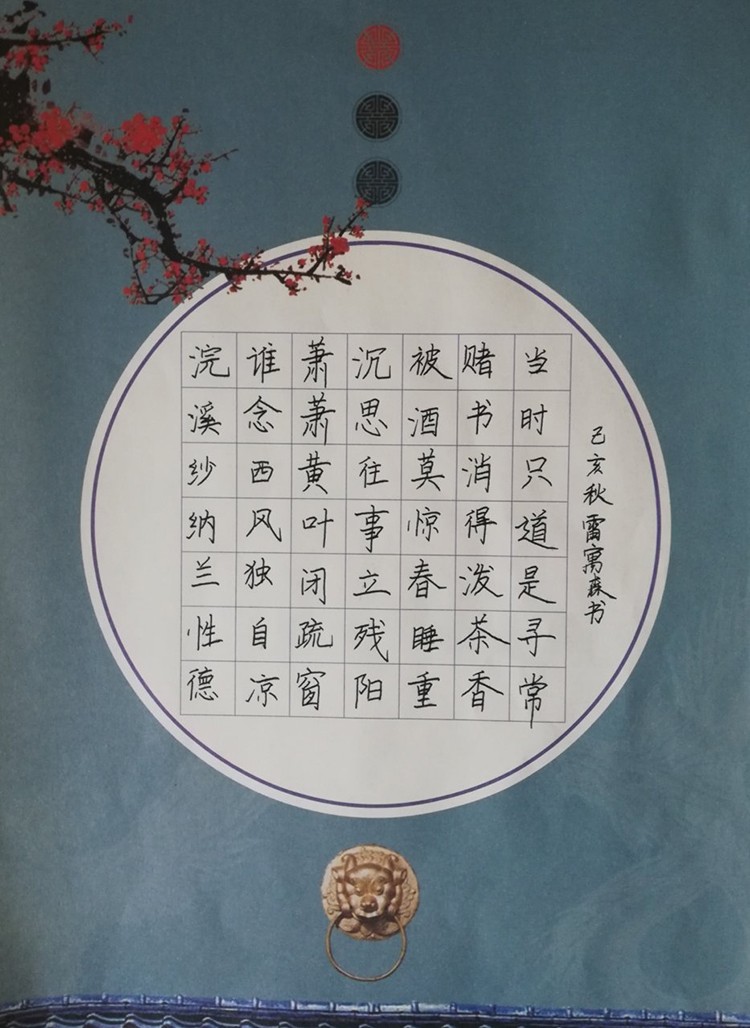 浣溪纱纳兰性德
谁念西风独自凉
萧萧黄叶闭疏窗
沉思往事立残阳
被酒莫惊春睡重
赌书消得泼茶香
当时只道是寻常
己亥秋雷寓森书